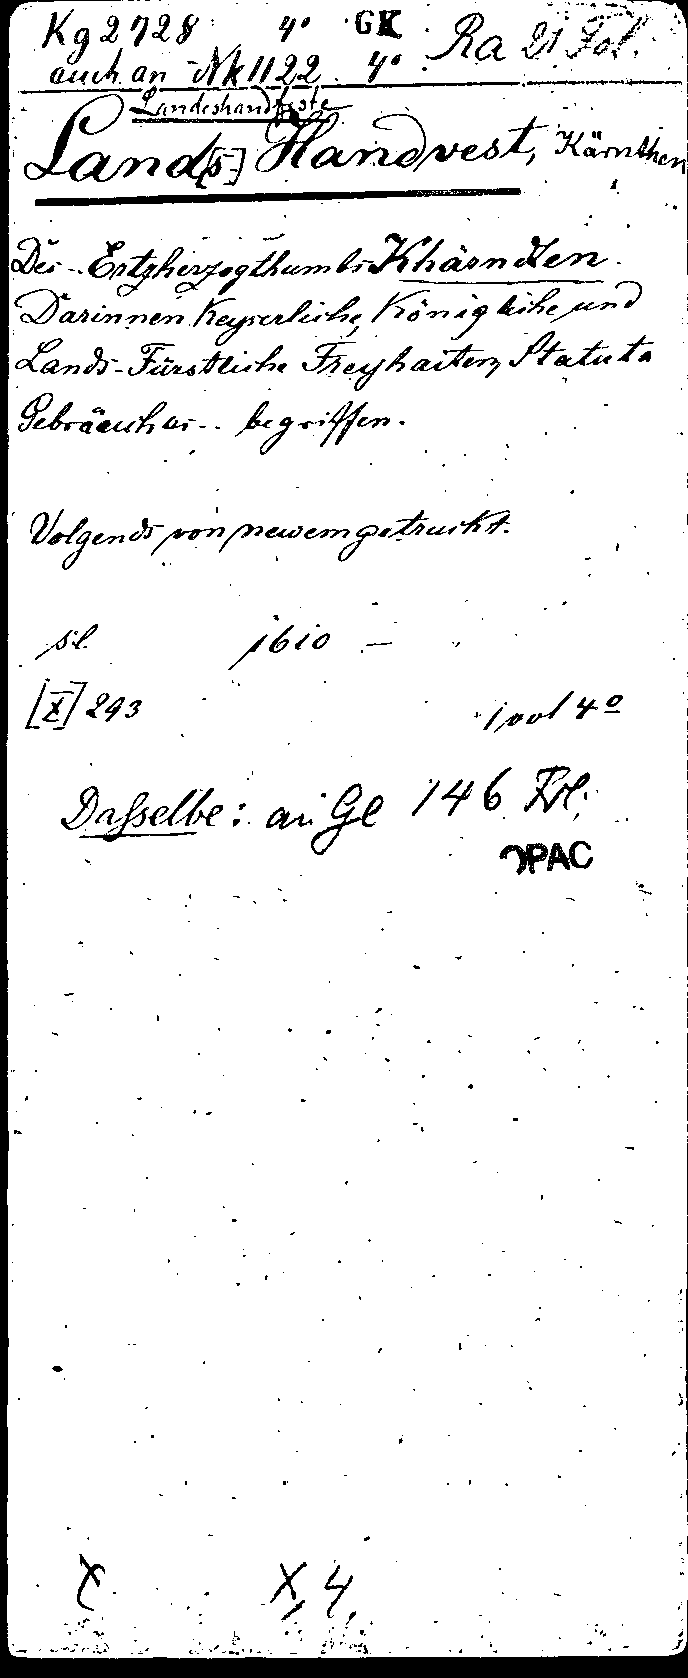 Kg 2728 4° GK Ra 21 Fol.
auch an Nk 1122 4°
Landeshandfeste
Land[s] Handvest, Kärnthen
Des Ertzherzogthumbs Khärndten.
Darinnen Keyserliche, Königliche, und
Lands-Fürstliche Freyhaiten, Statuta
Gebräuche... begriffen.
Volgends von newem getruckt.
sl. 1610 —
[X] 293 1 vol 4°
Dasselbe: an Gl 146 Fol.
OPAC
X X, 4,